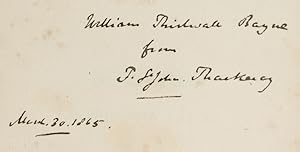 William Thirlwall Bayne
from
F. St John. Thackeray
March. 30. 1865.